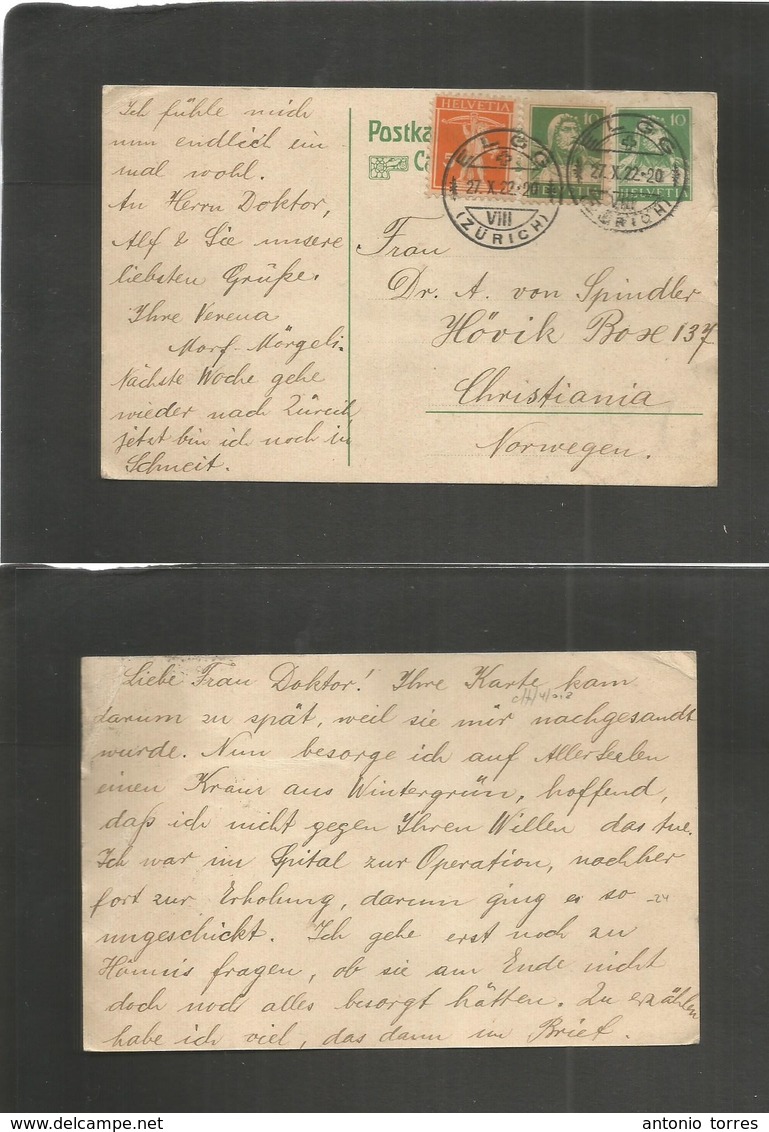 Ich fühle mich
nun endlich ein
mal wohl.
An Herrn Doktor,
Alf & Sie unsere
liebsten Grüße.
Ihre Verena
Morf-Mörgeli.
Nächste Woche gehe
wieder nach Zürich
jetzt bin ich noch in
Schneit.
Postka
HELVETIA
10
10
HELVETIA
ELGG
27.X.22-20
VIII
(ZÜRICH)
ELGG
27.X.22-20
VIII
(ZÜRICH)
Frau
Dr. A. von Spindler
Hövik Box 137
Christiania
Norwegen.
Liebe Frau Doktor! Ihre Karte kam
darum zu spät, weil sie mir nachgesandt
wurde. Nun besorge ich auf Allerseelen
einen Kranz aus Wintergrün, hoffend,
daß ich nicht gegen Ihren Willen das tue.
Ich war im Spital zur Operation, nachher
fort zur Erholung, darum ging es so
-24
ungeschickt. Ich gehe erst noch zu
Hönnis fragen, ob sie am Ende nicht
doch noch alles besorgt hätten. Zu erzählen
habe ich viel, das dann im Brief.
www.delcampe.net
antonio torres